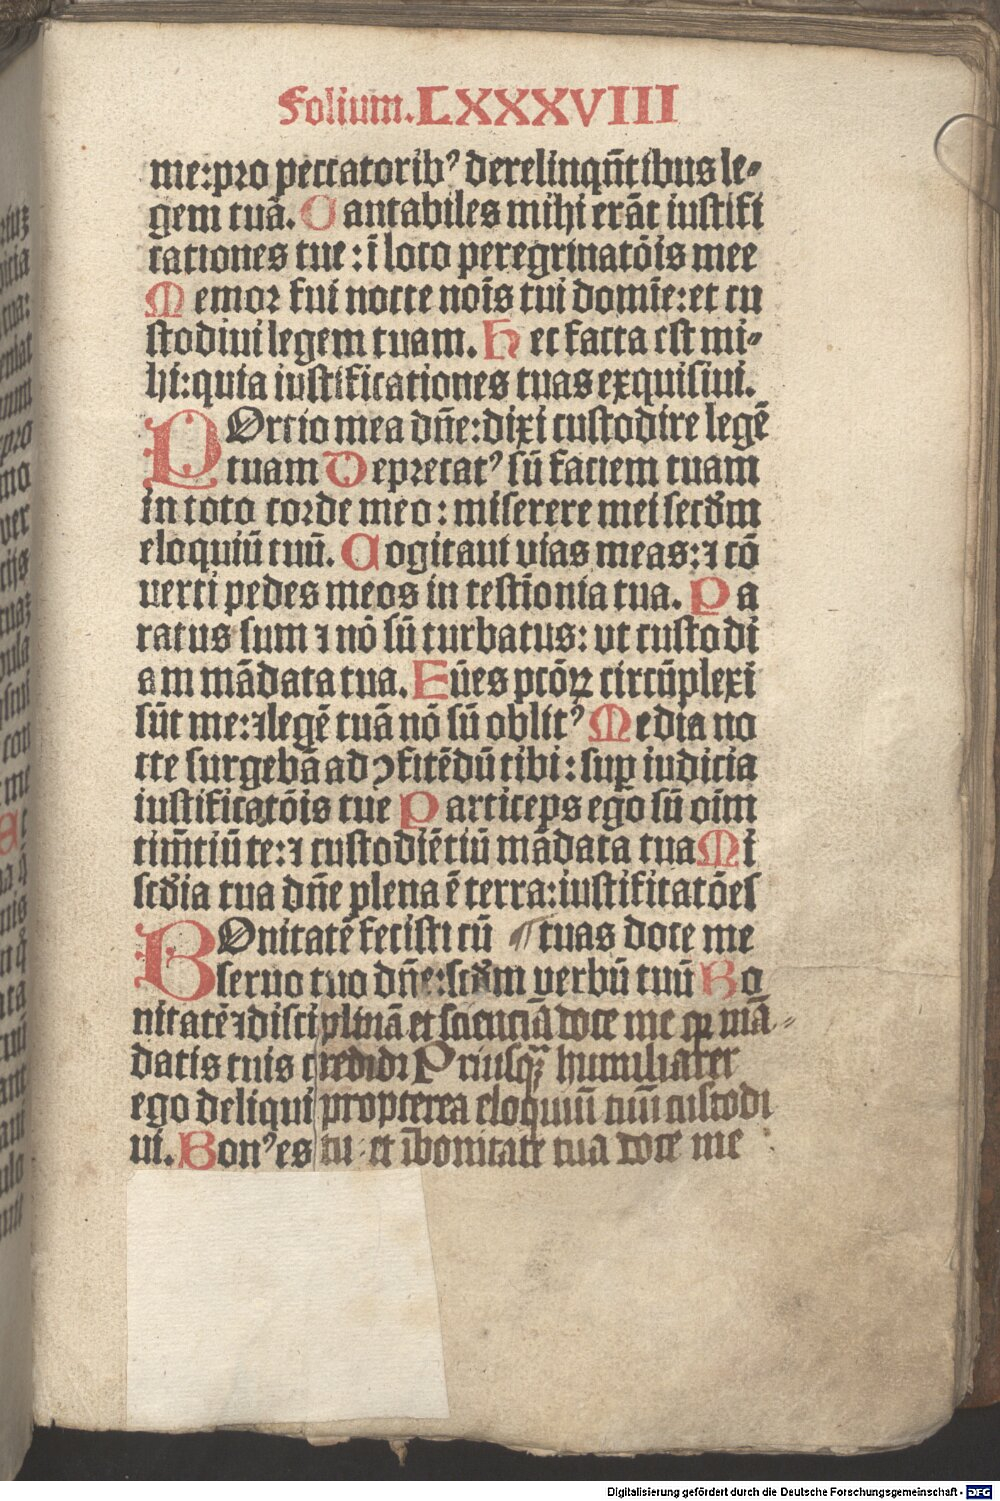 Folium. LXXXVIII
me:pro peccatorib⁹ derelinqn̄tibus le⸗
gem tuā. Cantabiles mihi erāt iustifi
cationes tue : ī loco peregrinatōis mee
Memor fui nocte nōis tui domīe: et cu
stodiui legem tuam. Hec facta est mi⸗
hi: quia iustificationes tuas exquisiui.
POrtio mea dn̄e: dixi custodire legē
tuam Deprecat⁹ sū faciem tuam
in toto corde meo : miserere mei secdm̄
eloquiū tuū. Cogitaui vias meas: ⁊ cō
uerti pedes meos in testīonia tua. Pa
ratus sum ⁊ nō sū turbatus: vt custodi
am mādata tua. Fūes pctōꝝ circūplexi
sūt me: ⁊ legē tuā nō sū oblit⁹ Media no
cte surgebā ad ꝯfitēdū tibi : sup iudicia
iustificatōis tue Particeps ego sū oīm
timn̄tiū te: ⁊ custodiētiū mādata tua Mi
scdīa tua dn̄e plena ē terra: iustificatōes
BOnitatē fecisti cū ¶ tuas doce me
seruo tuo dn̄e: scdm̄ verbū tuū Bo
nitatē ⁊ disciplinā et scienciā doce me qꝛ mā⸗
datis tuis credidi Priusqꝫ humiliarer
ego deliqui propterea eloquiū tuū custodi
ui. Bon⁹ es tu : et ī bonitate tua doce me
Digitalisierung gefördert durch die Deutsche Forschungsgemeinschaft - DFG